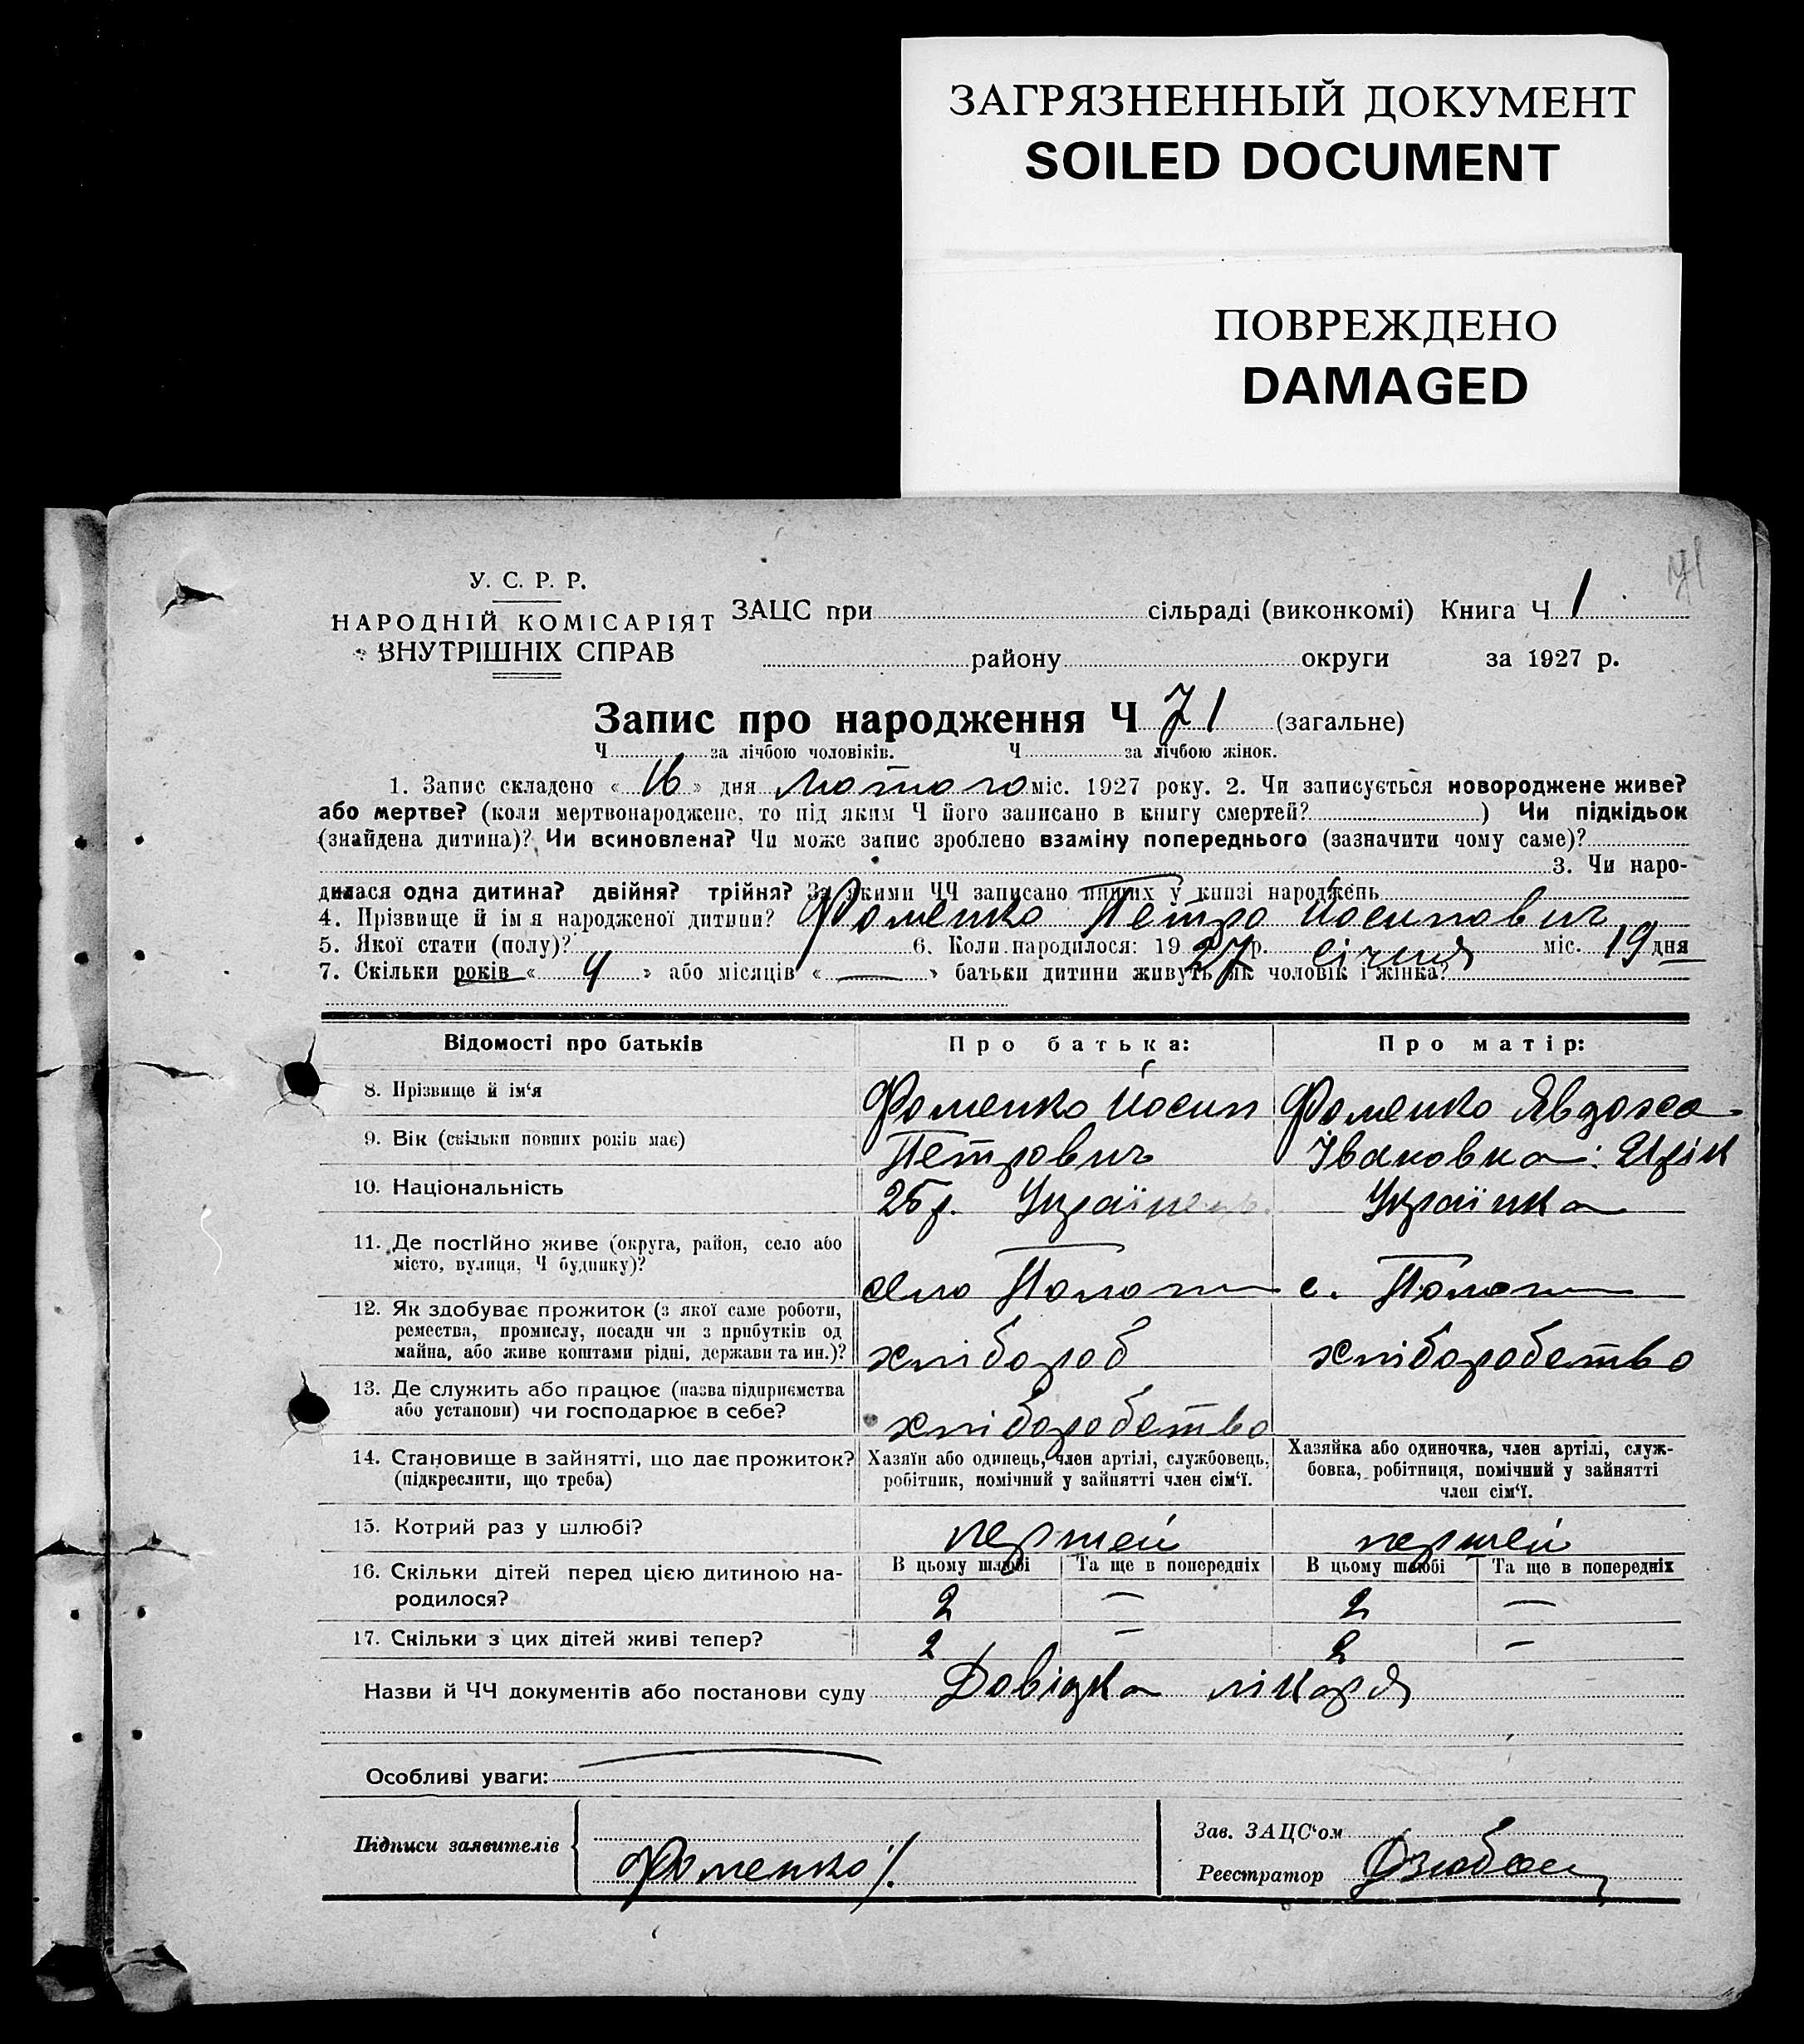 ЗАГРЯЗНЕННЫЙ ДОКУМЕНТ
SOILED DOCUMENT
ПОВРЕЖДЕНО
DAMAGED
71
У. С. Р. Р.
НАРОДНІЙ КОМІСАРІЯТ
ВНУТРІШНІХ СПРАВ
ЗАЦС при сільраді (виконкомі) Книга Ч 1
району округи за 1927 р.
Запис про народження Ч 71 (загальне)
Ч за лічбою чоловіків. Ч за лічбою жінок.
1. Запис складено « 16 » дня лютого міс. 1927 року. 2. Чи записується новороджене живе?
або мертве? (коли мертвонароджене, то під яким Ч його записано в книгу смертей? ) Чи підкідьок
(знайдена дитина)? Чи всиновлена? Чи може запис зроблено взаміну попереднього (зазначити чому саме)?
3. Чи наро-
дилася одна дитина? двійня? трійня? За якими ЧЧ записано инших у книзі народжень
4. Прізвище й ім я народженої дитини? Фоменко Петро Йосипович
5. Якої стати (полу)? 6. Коли народилося: 1927 р. січня міс. 19 дня
7. Скільки років « 4 » або місяців « — » батьки дитини живуть як чоловік і жінка?
Відомості про батьків Про батька: Про матір:
8. Прізвище й ім‘я Фоменко Йосип Фоменко Явдоха
9. Вік (скільки повних років має) Петрович Івановна: 24рік
10. Національність 25р. Українець Українка
11. Де постійно живе (округа, район, село або
місто, вулиця, Ч будинку)? село Пологи с. Пологи
12. Як здобуває прожиток (з якої саме роботи,
ремества, промислу, посади чи з прибутків од
майна, або живе коштами рідні, держави та ин.)? хлібороб хліборобство
13. Де служить або працює (назва підприємства
або установи) чи господарює в себе? хліборобство
14. Становище в зайнятті, що дає прожиток?
(підкреслити, що треба)
Хазяїн або одинець, член артілі, службовець,
робітник, помічний у зайнятті член сім‘ї.
Хазяйка або одиночка, член артілі, служ-
бовка, робітниця, помічний у зайнятті
член сім‘ї.
15. Котрий раз у шлюбі? первей первей
В цьому шлюбі Та ще в попередніх В цьому шлюбі Та ще в попередніх
16. Скільки дітей перед цією дитиною на-
родилося? 2 — 2 —
17. Скільки з цих дітей живі тепер? 2 — 2 —
Назви й ЧЧ документів або постанови суду Довідка лікаря
Особливі уваги:
Підписи заявителів Фоменко
Зав. ЗАЦС‘ом
Реєстратор